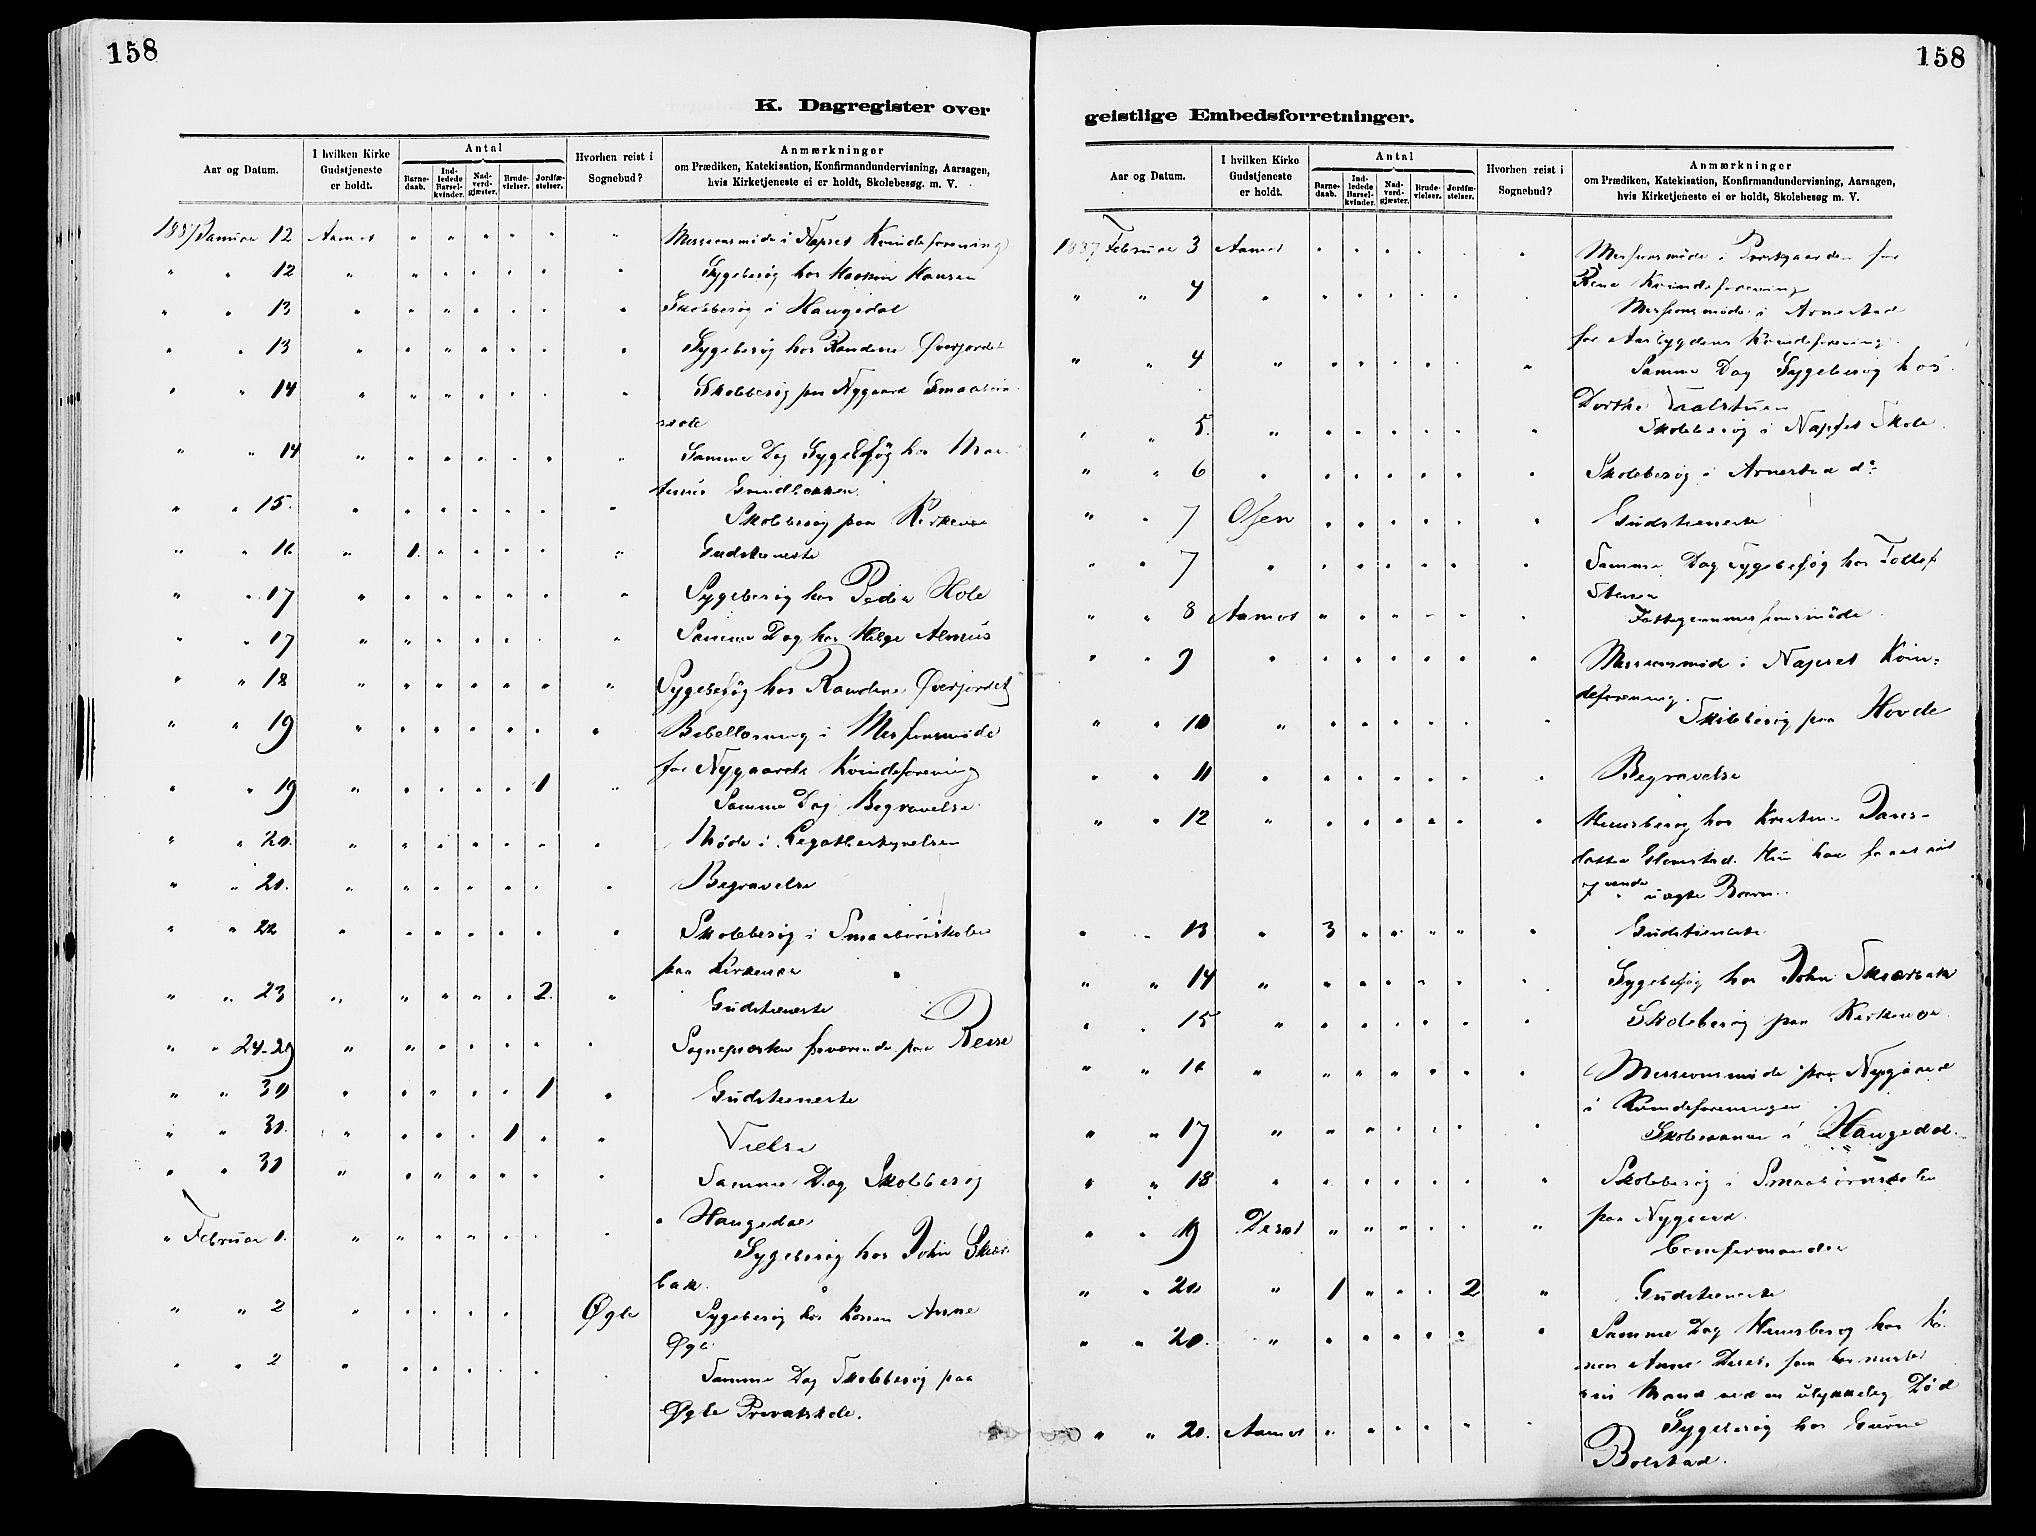 158
K. Dagregister over
Aar og Datum.
I hvilken Kirke Gudstjeneste er holdt.
Antal
Barnedaab.
Indledede Barselkvinder.
Nadverdgjæster.
Brudevielser.
Jordfæstelser.
Hvorhen reist i Sognebud?
Anmærkninger
om Prædiken, Katekisation, Konfirmandundervisning, Aarsagen,
hvis Kirketjeneste ei er holdt, Skolebesøg. m. V.
1887 Januar 12 Aamot " " " " " " Missionsmøde i Napset Kvindeforening
" " 12 " " " " " " " Sygebesøg hos Haakon Hansen
" " 13 " " " " " " " Skolebesøg i Haugedal
" " 13 " " " " " " " Sygebesøg hos Randine Øverjordet
" " 14 " " " " " " " Skolebesøg paa Nygaard Smaabørn
skole
" " 14 " " " " " " " Samme Dag Sygebesøg hos
" " 15. " " " " " " " Skolebesøg paa Kirkenær
" " 16 " 1. " " " " " Gudstieneste
" " 17 " " " " " " " Sygebesøg hos Peder Hole
" " 17 " " " " " " " Samme Dag hos Helge Alméus
" " 18 " " " " " " " Sygebesøg hos Randine Øverjordet
" " 19 " " " " " " " Bibellæsning i Missionsmøde
for Nygaards Kvindeforening
" " 19 " " " " " 1 " Samme Dag Begravelse
" " 20. " " " " " " " Møde i Legatbestyrelsen
" " 21. " " " " " " " Begravelse
" " 22 " " " " " " " Skolebesøg i Smaabørnskolen
paa Kirkenær
" " 23 " " " " " 2. " Gudstieneste
" " 24-29 " " " " " " " Sognepresten fraværende paa Reise
" " 30 " " " " " 1 " Gudstieneste
" " 30. " " " " 1 " " Vielse
" " 30 " " " " " " " Samme Dag Skolebesøg
i Haugedal
" Februar 1. " " " " " " " Sygebesøg hos John Skær-
bak.
" " 2 " " " " " Øgle Sygebesøg hos Konen Anne
Øgle
" " 2 " " " " " " " Samme Dag Skolebesøg paa
Øgle Privatskole.
158
geistlige Embedsforretninger.
Aar og Datum.
I hvilken Kirke Gudstjeneste er holdt.
Antal
Barnedaab.
Indledede Barselkvinder.
Nadverdgjæster.
Brudevielser.
Jordfæstelser.
Hvorhen reist i Sognebud?
Anmærkninger
om Prædiken, Katekisation, Konfirmandundervisning, Aarsagen,
hvis Kirketjeneste ei er holdt, Skolebesøg m. V.
1887 Februar 3 Aamot " " " " " " Missionsmøde i Prestgaarden for
Rena Kvindeforening
" " 4 " " " " " " " Missionsmøde i Arnestad
for Aasbygdens Kvindeforening.
" " 4 " " " " " " " Samme Dag Sygebesøg hos
Dorthe
" " 5. " " " " " " " Skolebesøg i Napset Skole
" " 6 " " " " " " " Skolebesøg i Arnestad do
" " 7 Osen " " " " " " Gudstieneste
" " 7 " " " " " " " Samme Dag Sygebesøg hos Tollef
Stener
" " 8 Aamot " " " " " " Fattigcommissionsmøde
" " 9 " " " " " " " Missionsmøde i Napset Kvin-
deforening.
" " 10 " " " " " " " Skolebesøg paa Hovde
" " 11 " " " " " " " Begravelse
" " 12 " " " " " " " Huusbesøg hos Kristine Dans-
datter Glomstad. Hun har faaet sit
7 ende uægte Barn.
" " 13 " 3 " " " " " Gudstieneste
" " 14 " " " " " " " Sygebesøg hos John Skærbak
" " 15 " " " " " " " Skolebesøg paa Kirkenær
" " 16 " " " " " " " Missionsmøde paa Nygaard
i Kvindeforeningen
" " 17 " " " " " " " Skolexamen i Haugedal.
" " 18 " " " " " " " Skolebesøg i Smaabørnskolen
paa Nygaard.
" " 19 Deset " " " " " " Comfirmander
" " 20 " 1 " " " 2 " Gudstieneste
" " 20. " " " " " " " Samme Dag Huusbesøg hos Ko-
nen Anne Deset, som har mistet
sin Mand ved en ulykkelig Død
" " 21. Aamot " " " " " " Sygebesøg hos Gurine
Bolstad.